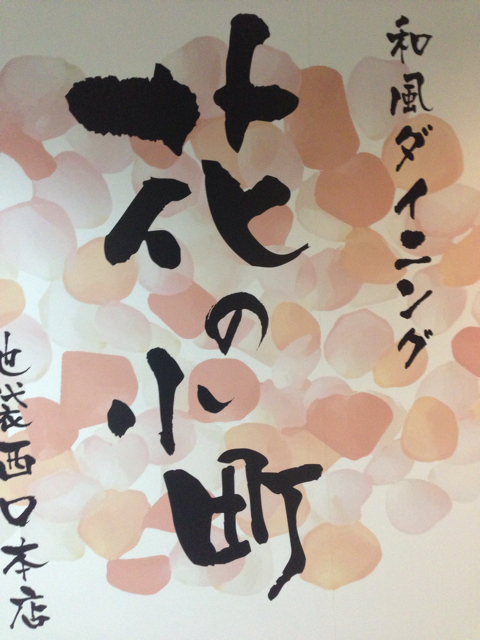 和風ダイニング
花の小町
池袋西口本店